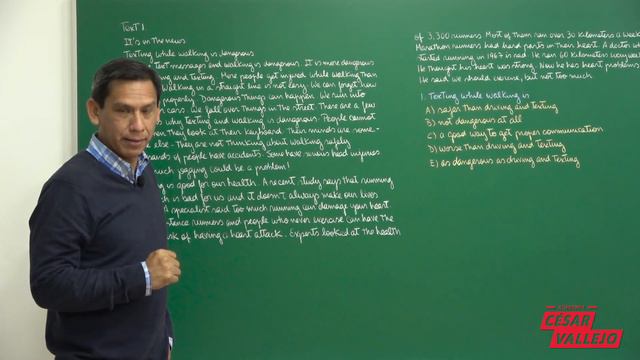 TEXT 1
It's in the news
Texting while walking is dangerous
text messages and walking is dangerous. It is more dangerous
and texting. More people get injured while walking than
walking in a straight line is not easy. We can forget how
properly. Dangerous things can happen. We run into
cars. We fall over things in the street. There are a few
why texting and walking is dangerous. People cannot
when they look at their keyboard. Their minds are some-
else - They are not thinking about walking safely
of people have accidents. Some have serious head injuries
much jogging could be a problem!
is good for our health. A recent study says that running
is bad for us and it doesn't always make our lives
A specialist said too much running can damage your heart
runners and people who never exercise can have the
risk of having a heart attack. Experts looked at the health
of 3,300 runners. Most of them ran over 30 kilometers a week
Marathon runners had hard parts in their heart. A doctor wh
started running in 1967 is sad. He ran 60 kilometers every week
He thought his heart was strong. Now he has heart problems
He said we should exercise, but not too much.
1. Texting while walking is
A) safer than driving and texting
B) not dangerous at all
C) a good way to get proper communication
D) worse than driving and texting
E) as dangerous as driving and texting
CÉSAR
VALLEJO